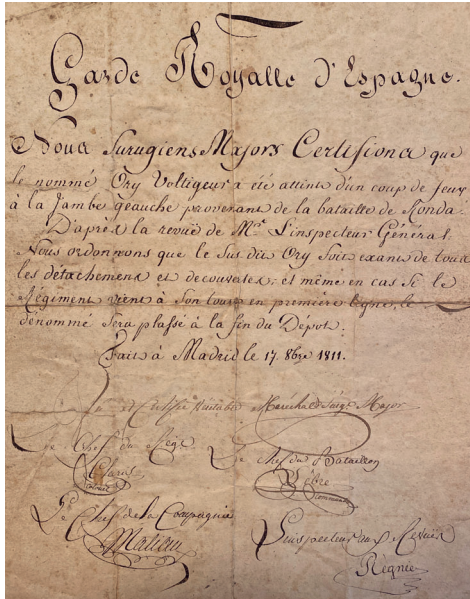 Garde Royalle d'Espagne.
Nous Surugiens Majors Certifions que
le nommé Ory Voltigeur a été atteint d'un coup de feux
à la Jambe geauche provenant de la bataille de Ronda.
D'après la revue de Mr L'inspecteur Général.
Nous ordonnons que le Sus dit Ory Soit exant de tous
les détachemens et decouvertes; et même en cas Si le
Régiment vient à Son tour en première ligne, le
dénommé Sera plassé à la fin du Dépot.
Fait à Madrid le 17. 8bre 1811.
Maréchal Major
Le Chef du
Le chef du Bataillon
Le Chef de la Compagnie
Matieu
L'inspecteur
Régnie